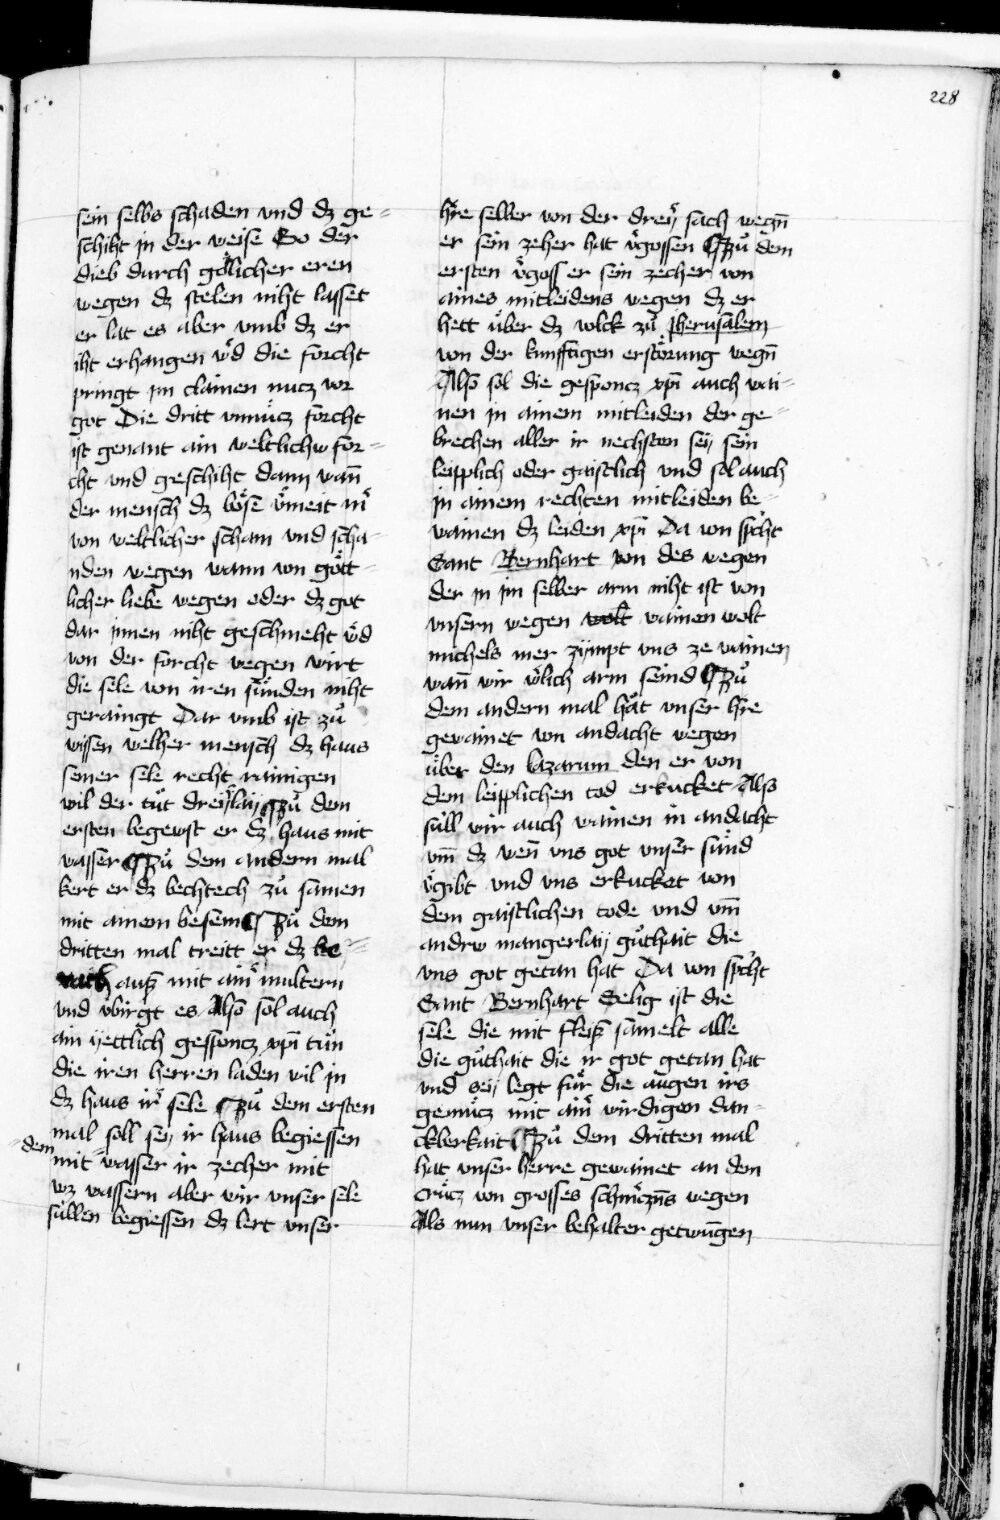 228
sein selbs schaden vnd dz ge=
schiht in der weise So der
dieb durch götlicher eren
wegen dz stelen niht lasset
er lat es aber vmb dz er
iht erhangen w̃d die forcht
pringt im clainen nucz vor
got Die dritt vnnücz forcht
ist genant ain weltlichw for=
cht vnd geschiht dann wañ
der mensch dz böse v̈meit nr̈
von weltlicher scham vnd scha=
nden wegen wann von gött=
licher liebe wegen oder dz got
dar jnnen niht geschmeht w̃d
von der forcht wegen wirt
die sele von iren sünden niht
geraingt Dar vmb ist zů
wissen welher mensch dz haus
seiner sele recht rainigen
wil der tůt dreÿlaÿ ¶ Zů dem
ersten begewst er dz haus mit
wasser ¶ Zů dem andern mal
kert er dz bechtech zů samen
mit ainem besem ¶ Zů dem
dritten mal treitt er dz be=
auß mit ain̈ multern
vnd v̈birgt es Also sol auch
ain ÿettlich gesponcz xp̄i tůn
die iren herren laden wil in
dz haus ir̈ sele ¶ Zů dem ersten
mal soll seÿ ir haus begiessen
=dem mit= wasser ir zecher mit
wz wassern aber wir vnser sele
süllen begiessen dz lert vnser
hr̄e selber von der dreÿ sach wegn̄
er sein zeher hat v̈gossen ¶ Zů dem
ersten v̈goss er sein zecher von
aines mitleidens wegen dz er
hett über dz volck zů Jherusalem
von der kunfftigen erstörung wegn̄
Also sol die gesponcz xp̄i auch wai=
nen in ainem mitleiden der ge=
brechen aller ir nechsten seÿ sein
leipplich oder gaistlich vnd sol auch
in ainem rechten mitleiden be=
wainen dz leiden xp̄i Da von sp̈cht
Sant Bernhart von des wegen
der in im selber arm niht ist von
vnsern wegen wolt wainen wolt
michels mer zÿmpt vns ze wainen
wañ wir w̃lich arm seind ¶ Zů
dem andern mal hat vnser hr̄e
gewainet von andacht wegen
über den lazarum den er von
dem leipplichen tod erkucket Also
süll wir auch wainen in andacht
vm̄ dz wen̄ vns got vnser sünd
v̈gibt vnd vns erkucket von
dem gaistlichen tode vnd vm̄
andrw mangerlaÿ gůthait die
vns got getan hat Da von sp̈cht
Sant Bernhart Selig ist die
sele die mit fleiß samelt alle
die gůthait die ir got getan hat
vnd seÿ legt für die augen irs
gemücz mit ain̈ wirdigen dan=
ckberkait ¶ Zů dem dritten mal
hat vnser herre gewainet an dem
crücz von grosses schm̈czn̄s wegen
Als nun vnser behalter getwūgen